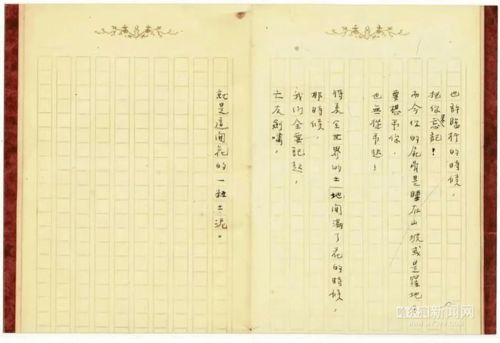 也許臨行的時候，
把你忘記！
而今你的尸骨是睡在山坡或是窪地
要想弔你，
也無從弔起！
將來全世界的土地開滿了花的時候，
那時候，
我们全要記起，
亡友劍嘯，
就是這開花的一粒土泥。
新闻网